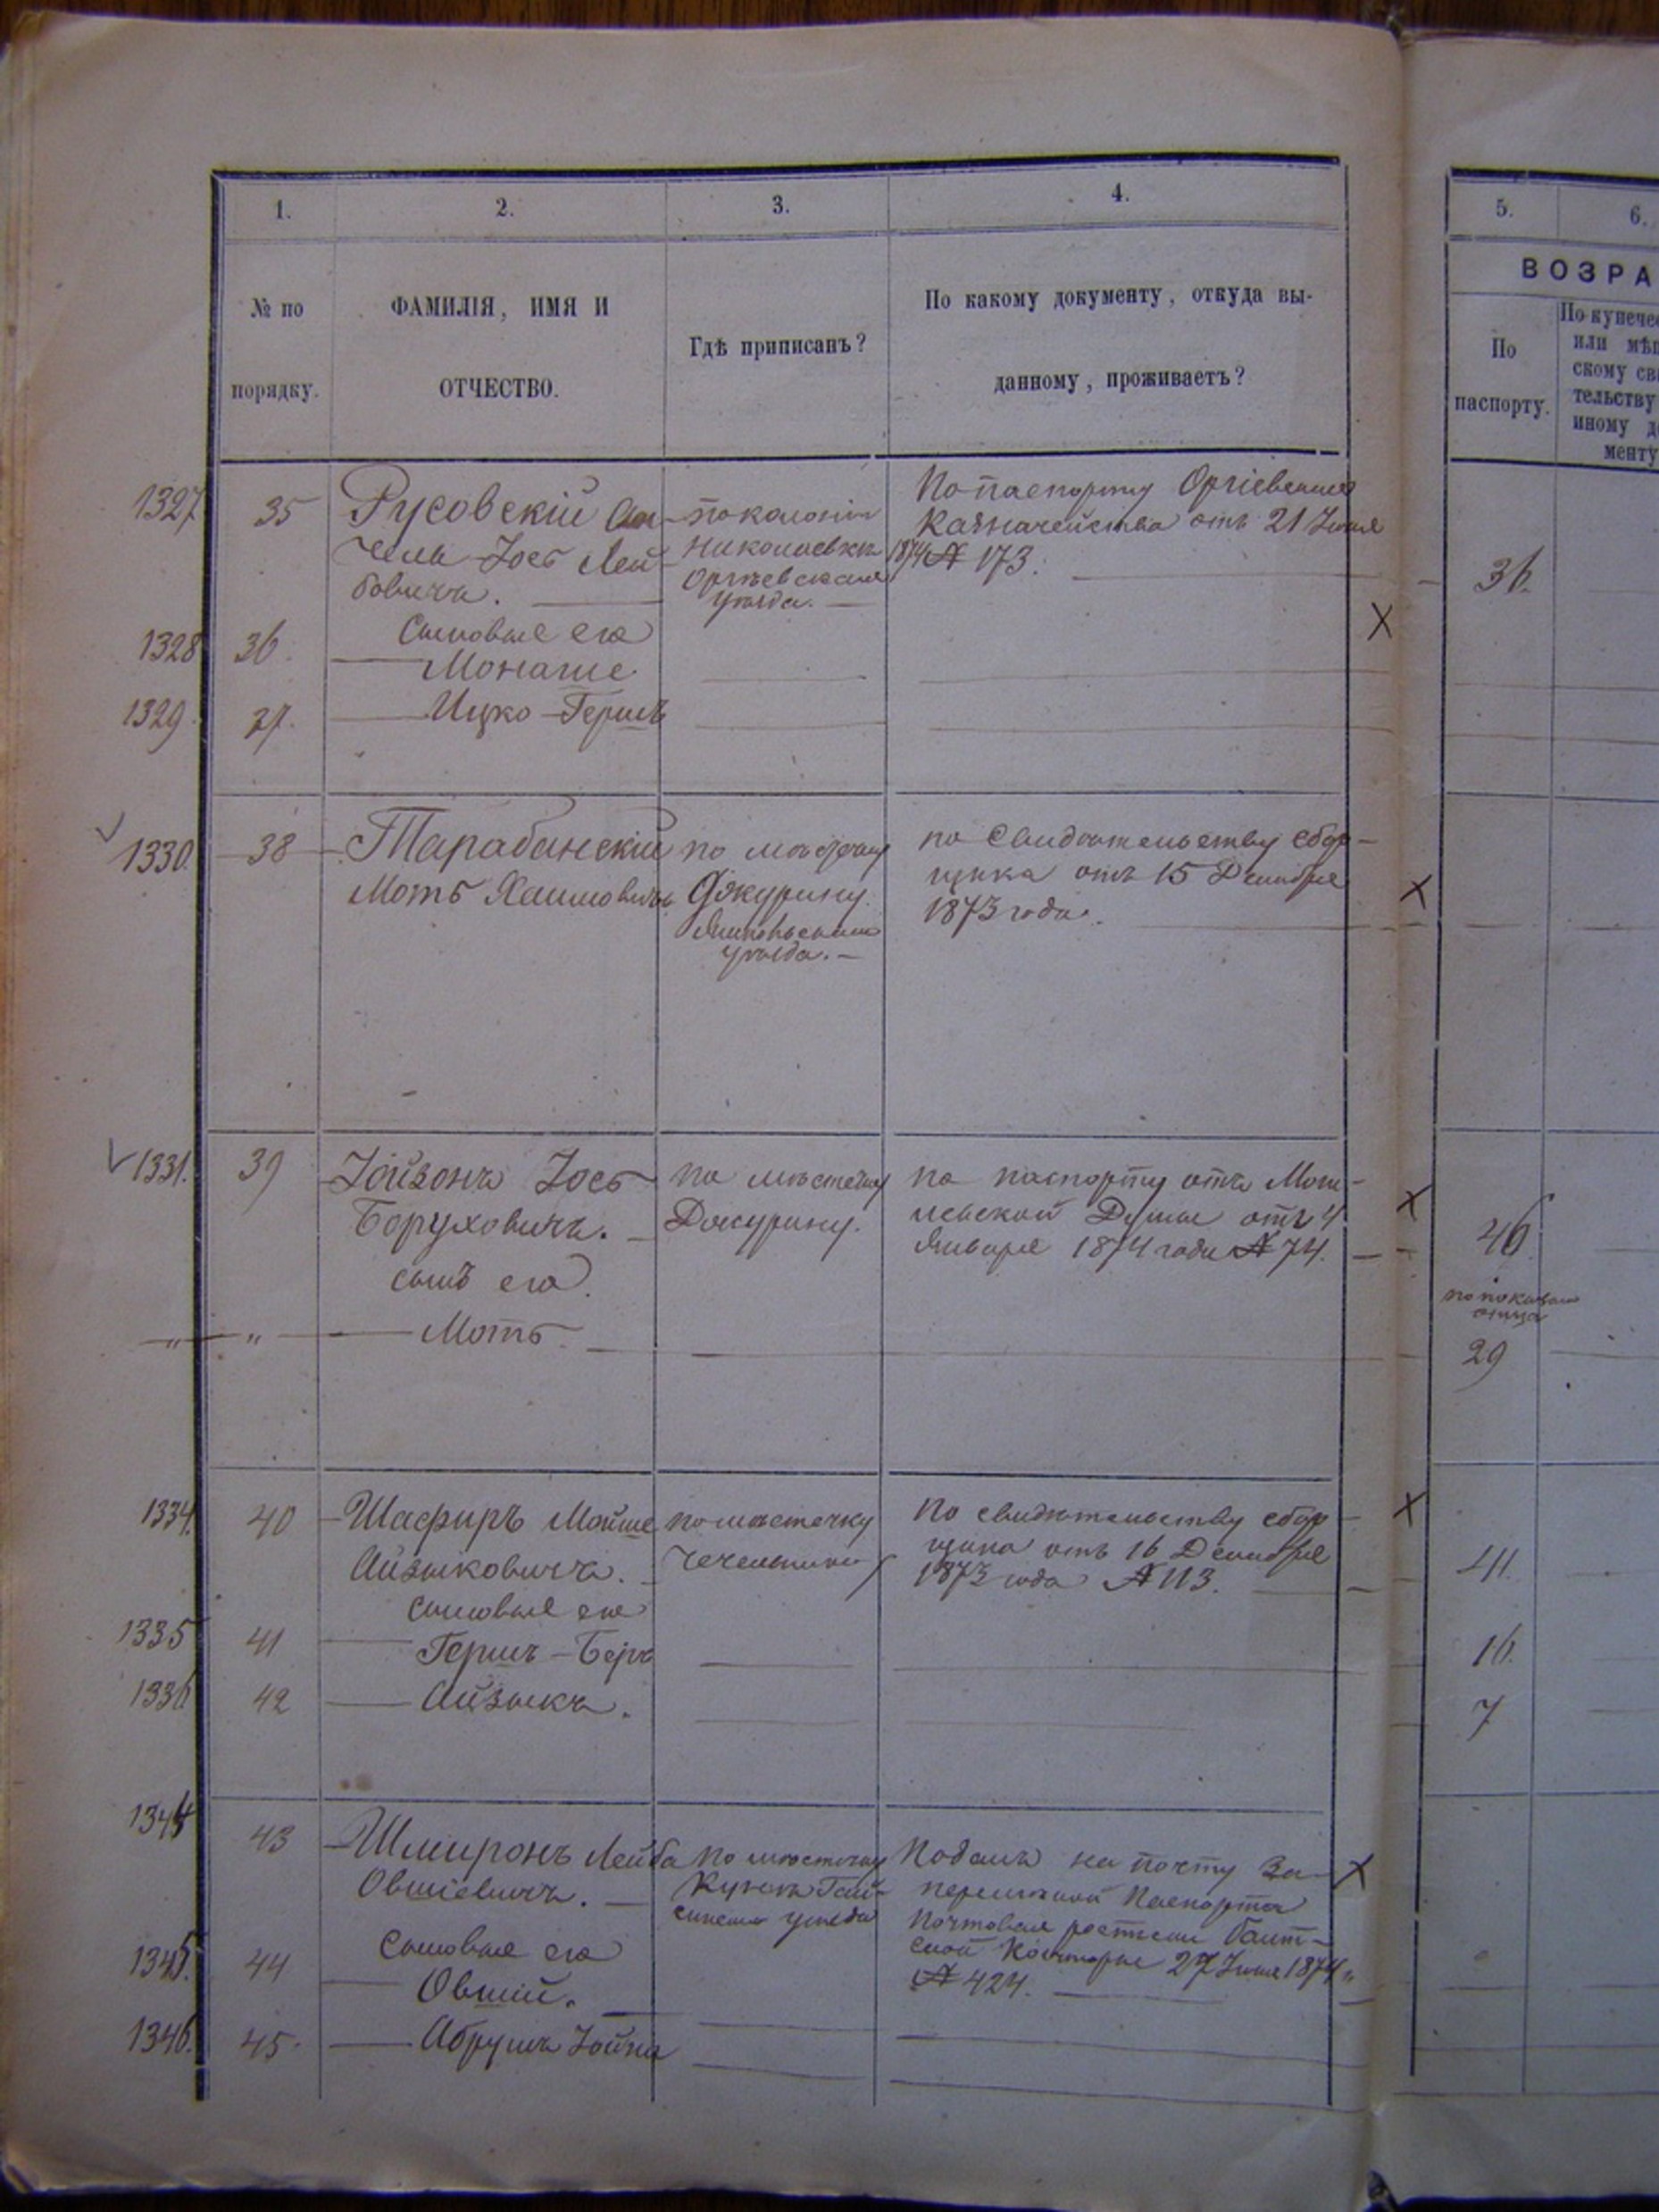 1. 2. 3. 4. 5. 6.
№ по порядку.
ФАМИЛІЯ, ИМЯ И
ОТЧЕСТВО.
Гдѣ приписанъ?
По какому документу, откуда вы-
данному, проживаетъ?
ВОЗРА
По
паспорту.
По купечес
или мѣщ
скому сви
тельству
иному д
менту
1327 35 Русовскій
Іось Лей-
бовичъ.
по колоніи
Николаевкѣ
Оргѣевскаго
уѣзда.
По паспорту Оргіевскаго
Казначейства отъ 21 Іюня
1874 № 173.
36.
1328 36. Сыновья его
Монаше
1329. 37. Ицко-Гершъ
1330. 38 Тарабанскій
Мотъ Хаимовичъ
по мѣстечку
Джурину.
Ямпольскаго
уѣзда.
по свидѣтельству сбор-
щика отъ 15 Декабря
1873 года.
1331. 39 Іойзонъ Іось
Боруховичъ.
по мѣстечку
Джурину.
по паспорту отъ Моги-
левской Думы отъ 4
Января 1874 года № 74.
46
сынъ его.
" " Моть.
по показан
отца
29
1334. 40 Шафиръ Мойше
Айзыковичъ.
по мѣстечку
Чечельнику
По свидѣтельству сбор-
щика отъ 16 Декабря
1873 года № 113.
41.
сыновья его
1335 41 Гершъ-Беръ
16.
1336 42 Айзыкъ.
7
1344 43 Шмиронъ Лейба
Овшіевичъ.
по мѣстечку
Гай-
синскаго уѣзда
Подалъ на почту за
перемѣной Паспорта
Почтовая росписка Балт-
ской Конторы 27 Іюня 1874
№ 424.
1345. 44 Сыновья его
Овшій.
1346. 45. Абрумъ Іойна